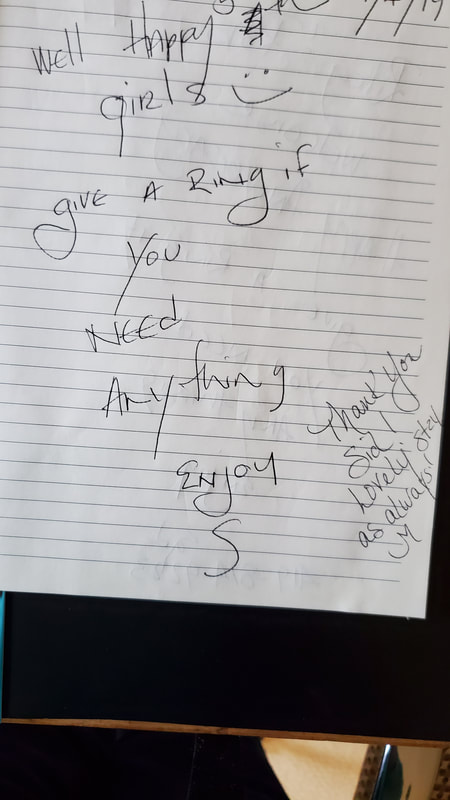 Well Happy
girls
give A Ring if
You
NEED
Anything
ENJOY
S
Thank you
Sid!
Lovely stay
as always!